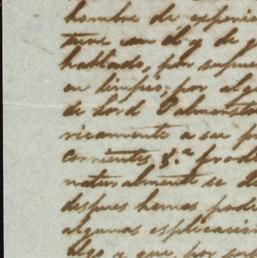 hombre de experien
tuve con el y de
hablado, por supue
en limpio; por algu
de Lord Palmersto
ricamente a su p
corrientes, &.ª prod
naturalmente se d
despues hemos podi
algunas esplicacion
algo a que, por